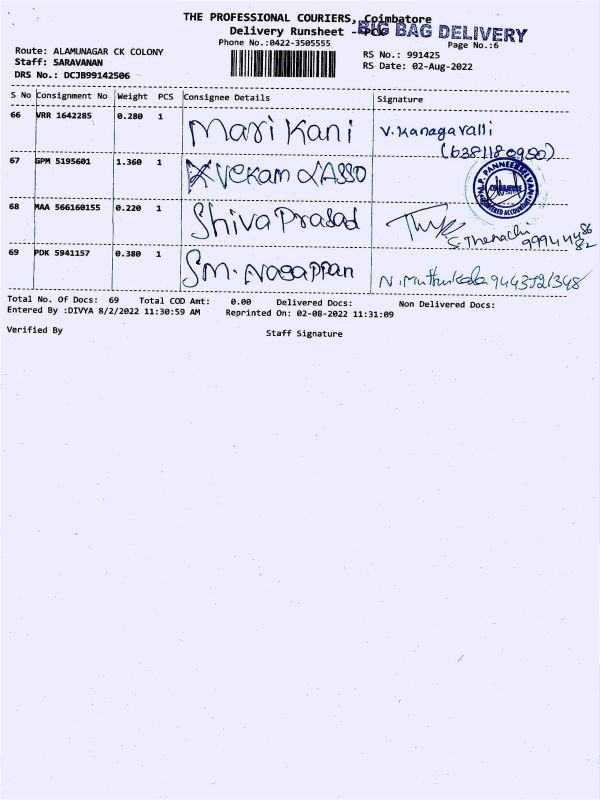 THE PROFESSIONAL COURIERS, Coimbatore
Delivery Runsheet - PCK
BIG BAG DELIVERY
Phone No.:0422-3505555
Page No.:6
Route: ALAMUNAGAR CK COLONY
RS No.: 991425
Staff: SARAVANAN
RS Date: 02-Aug-2022
DRS No.: DCJB99142506
S No Consignment No Weight PCS Consignee Details Signature
66 VRR 1642285 0.280 1 Mari Kani V. Kanagavalli
(6381180950)
67 GPM 5195601 1.360 1 Vekam & ASSO
P. PANNEERSELVAN
COIMBATORE
CHARTERED ACCOUNTANT
68 MAA 566160155 0.220 1 Shiva Prasad
69 PDK 5941157 0.380 1 SM. Nagappan N. Muthukala 9443521348
Total No. Of Docs: 69 Total COD Amt: 0.00 Delivered Docs: Non Delivered Docs:
Entered By :DIVYA 8/2/2022 11:30:59 AM Reprinted On: 02-08-2022 11:31:09
Verified By Staff Signature